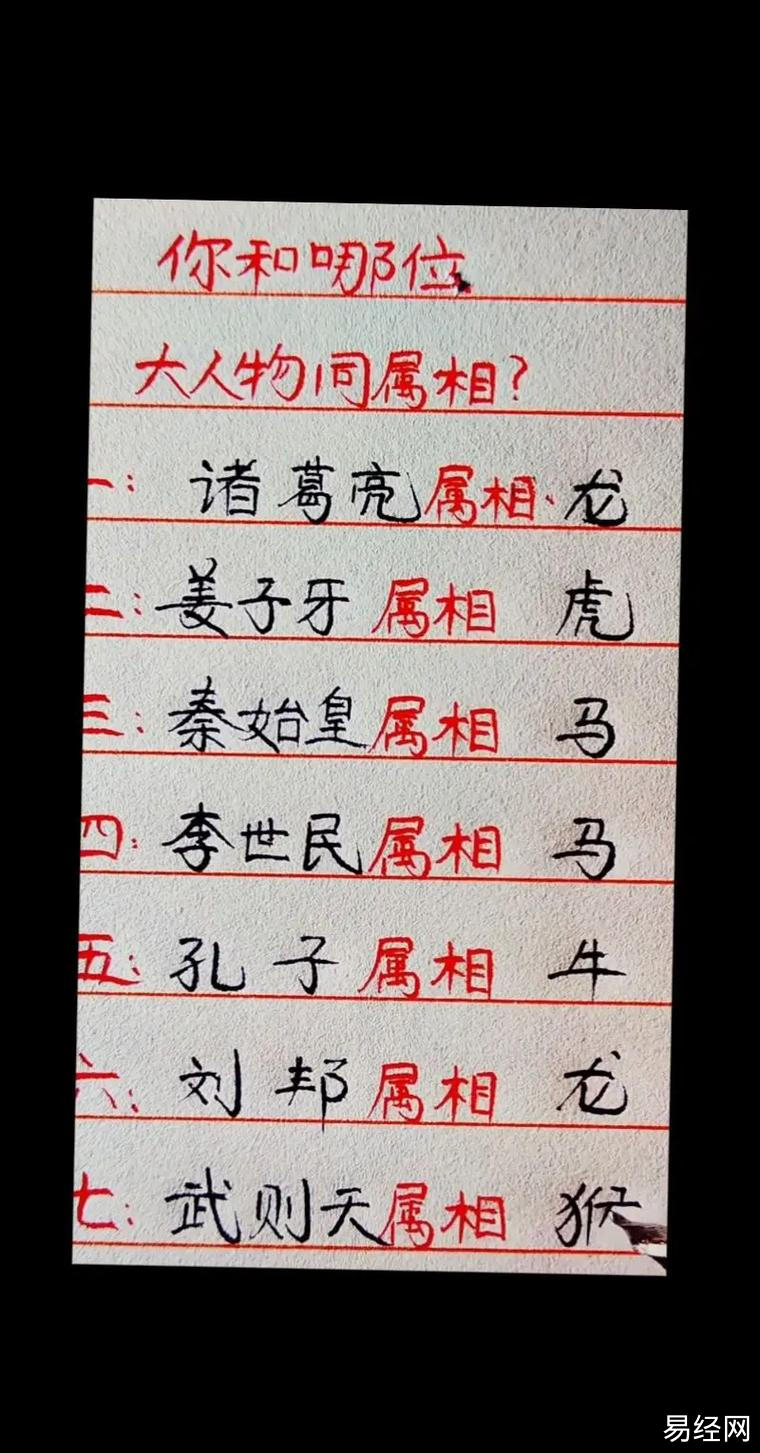 你和哪位
大人物同属相?
一: 诸葛亮属相、龙
二: 姜子牙属相 虎
三: 秦始皇属相 马
四: 李世民属相 马
五: 孔子属相 牛
六: 刘邦属相 龙
七: 武则天属相 猴
易经网